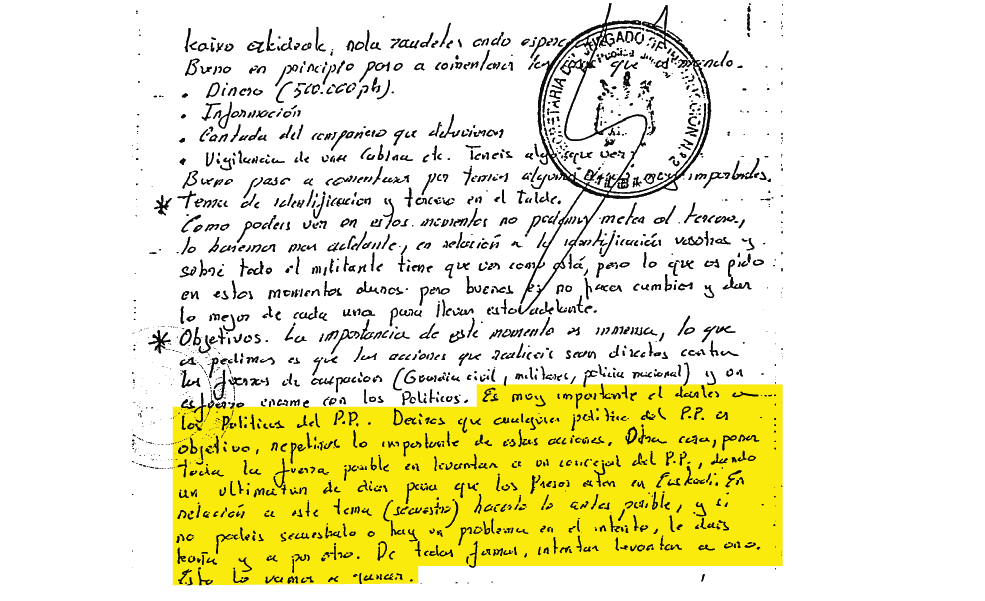 kaixo askideok, nola zaudeles ondo espero
Bueno en principio paso a comentaros las cosas que os mando.
• Dinero (500.000 pts).
• Información
• Cantada del compañero que detuvieron
• Vigilancia de una Cabina etc. Teneis algo que ver.
Bueno paso a comentaros por temas algunas cosas muy importantes.
* Tema de identificacion y tercero en el Talde.
Como podeis ver en estos momentos no podemos meter al tercero,
lo haremos mas adelante, en relación a la identificación vosotros y
sobre todo el militante tiene que ver como está, pero lo que os pido
en estos momentos duros pero buenos es no hacer cambios y dar
lo mejor de cada uno para llevar esto adelante.
* Objetivos. La importancia de este momento es inmensa, lo que
os pedimos es que las acciones que realiceis sean directas contra
las fuerzas de ocupacion (Guardia civil, militares, policia nacional) y un
esfuerzo enorme con los Politicos. Es muy importante el darles a
los Politicos del P.P. Deciros que cualquier politico del P.P. es
objetivo, repetiros lo importante de estas acciones. Otra cosa, poner
toda la fuerza posible en levantar a un concejal del P.P., dando
un ultimatun de dias para que los Presos esten en Euskadi. En
relación a este tema (secuestro) hacerlo lo antes posible, y si
no podeis secuestralo o hay un problema en el intento, le dais
y a por otro. De todas formas, intentar levantar a uno.
Esto lo vamos a ganar.
SECRETARIA DEL JUZGADO DE INSTRUCCIÓN N.º 2